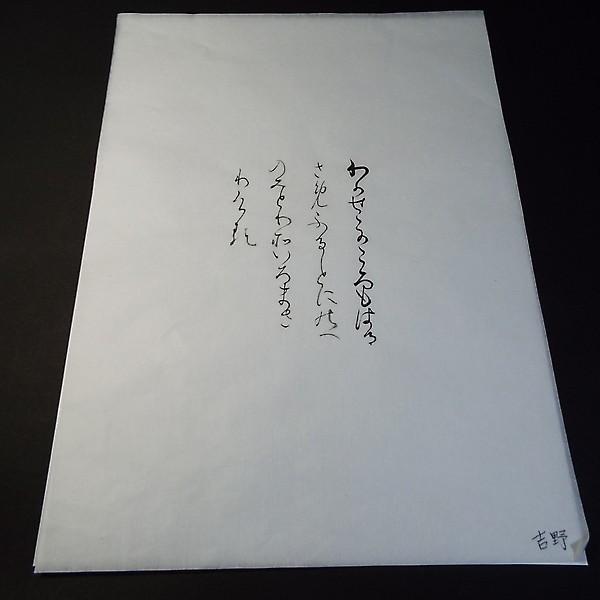 わかせこかころもはる
さめふることにのへ
のみとりそいろまさ
りける
吉野